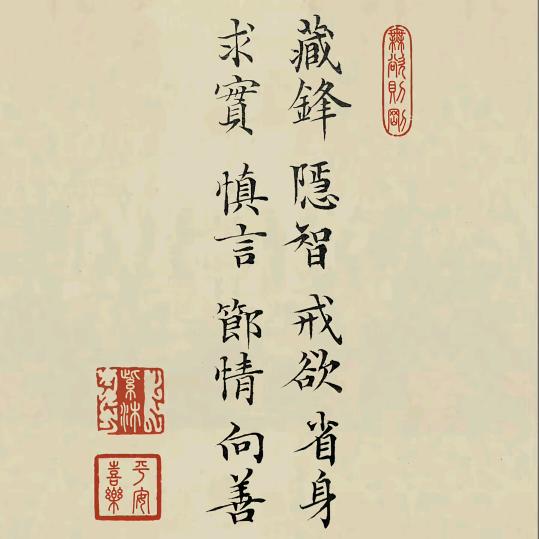 無欲則剛
藏鋒 隱智 戒欲 省身
求實 慎言 節情 向善
平安
喜樂